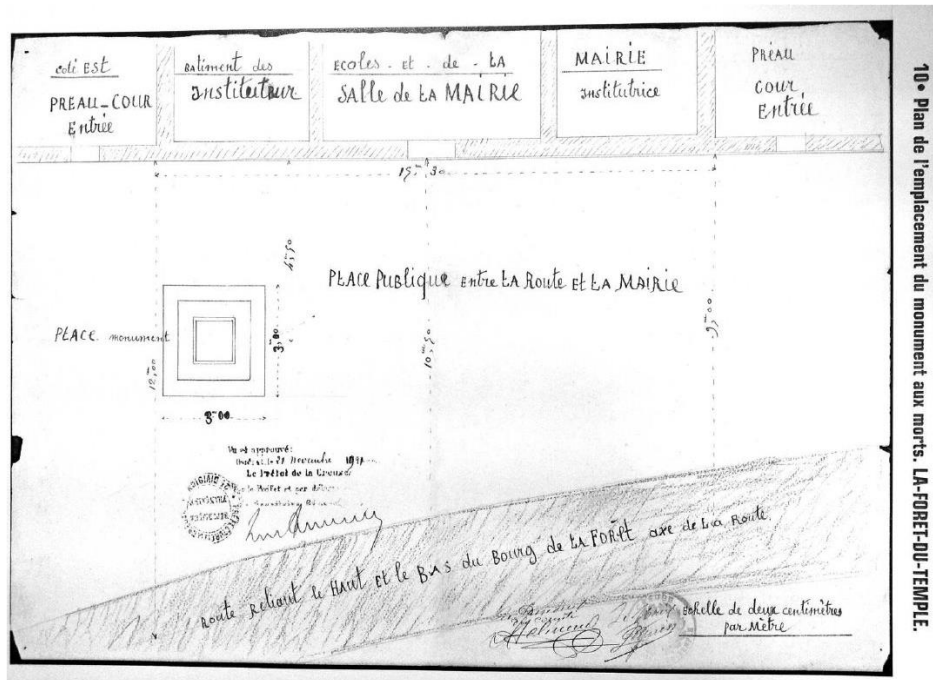 coté EST
PREAU-COUR
Entrée
Batiment des
Instituteur
ECOLES - et - de - LA
SALLE de LA MAIRIE
MAIRIE
institutrice
PRÉAU
COUR
Entrée
15m30
4m50
PLACE PUBLIQUE entre LA Route Et LA MAIRIE
PLACE monument
12m00
3m00
10m50
9m00
3m00
Vu et approuvé:
novembre
Le Préfet de la Creuse
Route Reliant le HAUT Et le BAS du Bourg de LA FORÊt axe de La Route
Echelle de deux centimètres
par Mètre
10• Plan de l'emplacement du monument aux morts. LA-FORET-DU-TEMPLE.